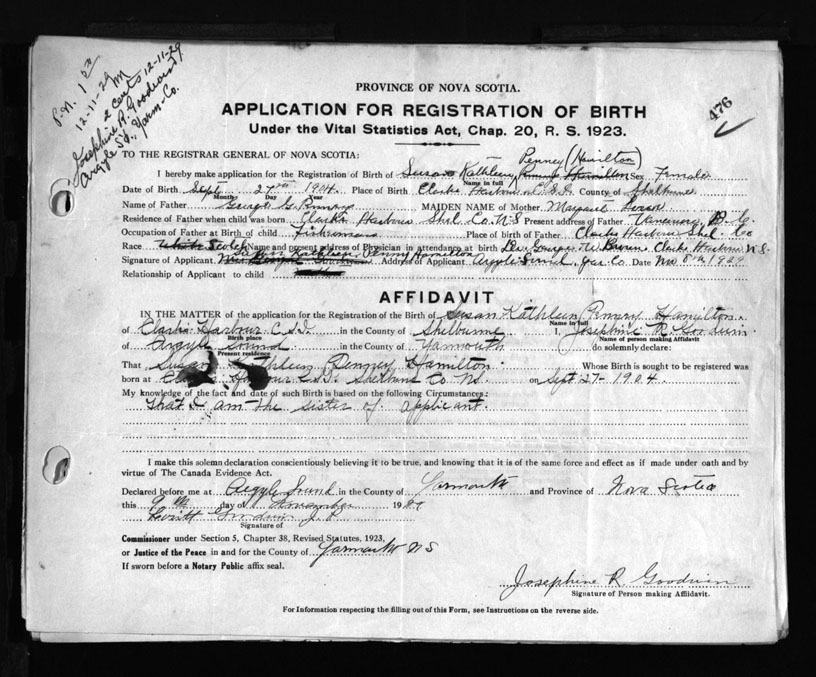 P.N. 1
12-11-29 M
2 cents 12-11-29
Josephine R. Goodwin
Argyle Sd., Yarm. Co.
476
PROVINCE OF NOVA SCOTIA.
APPLICATION FOR REGISTRATION OF BIRTH
Under the Vital Statistics Act, Chap. 20, R. S. 1923.
TO THE REGISTRAR GENERAL OF NOVA SCOTIA:
Penney (Hamilton)
I hereby make application for the Registration of Birth of Susan Kathleen Penney Hamilton Sex Female
Name in full
Date of Birth Sept 27 1904. Place of Birth Clarks Harbour C.S.I. County of Shelburne
Month Day Year
Name of Father George G. Penney MAIDEN NAME of Mother Margaret
Residence of Father when child was born Clarks Harbour Shel. Co. N.S Present address of Father Vancouver B.C.
Occupation of Father at Birth of child Fisherman Place of Birth of Father Clarks Harbour Shel. Co
Race Scotch Name and present address of Physician in attendance at birth Dr. George W. Brown Clarks Harbour N.S.
Susan Kathleen Penney Hamilton
Signature of Applicant Address of Applicant Argyle Sound, Yar. Co. Date Nov 8th 1929
Relationship of Applicant to child
AFFIDAVIT
IN THE MATTER of the application for the Registration of the Birth of Susan Kathleen Penney Hamilton
Name in full
of Clarks Harbour C.S.I. in the County of Shelburne I, Josephine R. Goodwin
Birth place Name of person making Affidavit
of Argyle Sound in the County of Yarmouth do solemnly declare:
Present residence
That Susan Kathleen Penney Hamilton Whose Birth is sought to be registered was
born at Clarks Harbour C.S.I. Shelburne Co. N.S. on Sept 27-1904.
My knowledge of the fact and date of such Birth is based on the following Circumstances:
That I am the sister of applicant.
I make this solemn declaration conscientiously believing it to be true, and knowing that it is of the same force and effect as if made under oath and by
virtue of The Canada Evidence Act.
Declared before me at Argyle Sound in the County of Yarmouth and Province of Nova Scotia
this 9th day of November 1929
Goodwin J.P.
Signature of
Commissioner under Section 5, Chapter 38, Revised Statutes, 1923,
or Justice of the Peace in and for the County of Yarmouth N S
If sworn before a Notary Public affix seal.
Josephine R. Goodwin
Signature of Person making Affidavit.
For Information respecting the filling out of this Form, see Instructions on the reverse side.